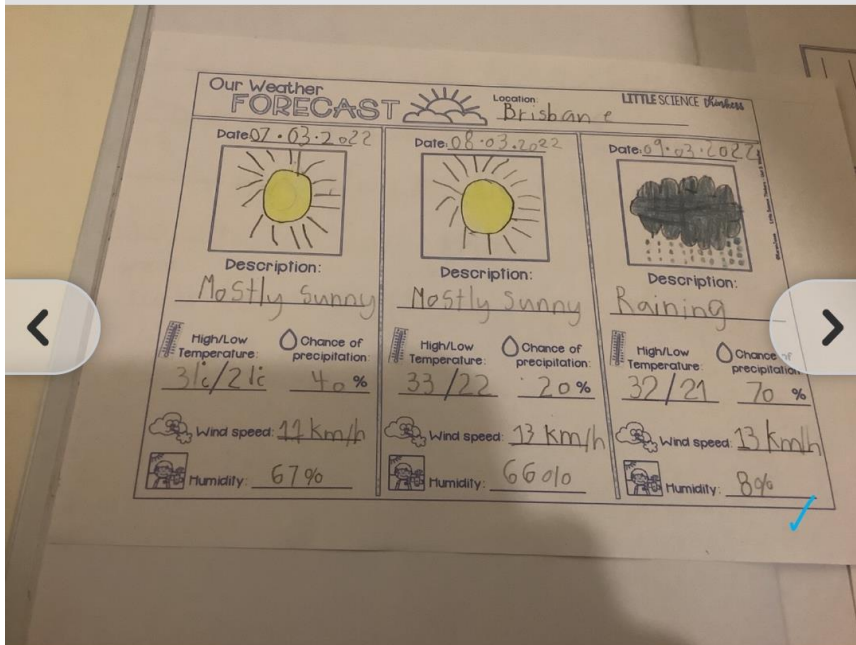 Our Weather
FORECAST
Location: Brisbane
LITTLE SCIENCE thinkers
Date: 07.03.2022
Description:
Mostly Sunny
High/Low Temperature: 31c/21c
Chance of precipitation: 40%
Wind speed: 11 km/h
Humidity: 67%
Date: 08.03.2022
Description:
Mostly Sunny
High/Low Temperature: 33/22
Chance of precipitation: 20%
Wind speed: 13 km/h
Humidity: 66%
Date: 09.03.2022
Description:
Raining
High/Low Temperature: 32/21
Chance of precipitation: 70%
Wind speed: 13 km/h
Humidity: 8%